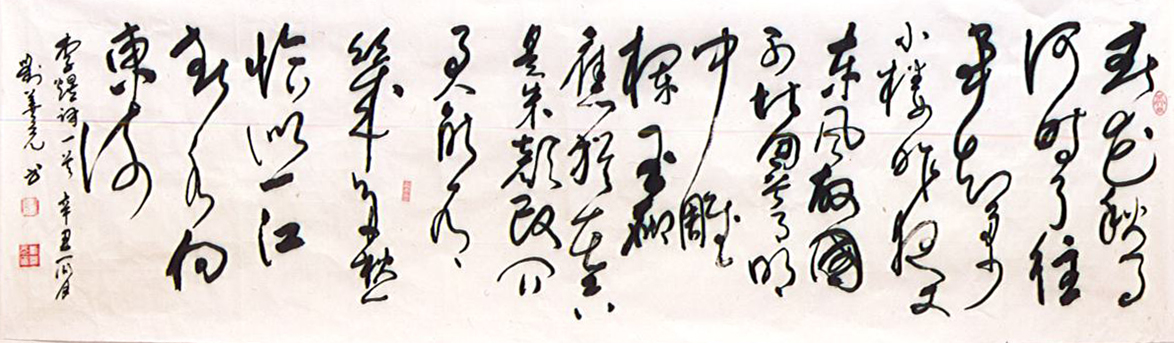 春花秋月
何时了往
事知多少
小楼昨夜又
东风故國
不堪回首月明
中雕
栏玉砌
應猶在只
是朱颜改问
君能有
幾多愁
恰似一江
春水向
東流
李煜词一首 辛丑 月
书